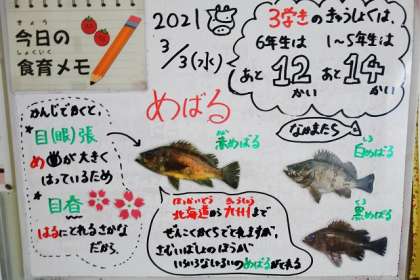 きょう
今日の
しょくいく
食育メモ
2021
3/3(水)
3学きのきゅうしょくは、
6年生は 1～5年生は
あと12かい あと14かい
めばる
かんじでかくと、
目(眼)張
めが大きく
はっているため
目春
はるにとれるさかな
だから。
あか
赤めばる
なかまたち
しろ
白めばる
くろ
黒めばる
ほっかいどう きゅうしゅう
北海道から九州まで
ぜんこくかくちでとれますが、
さむいばしょのほうが
いろいろなしゅるいのめばるがとれる